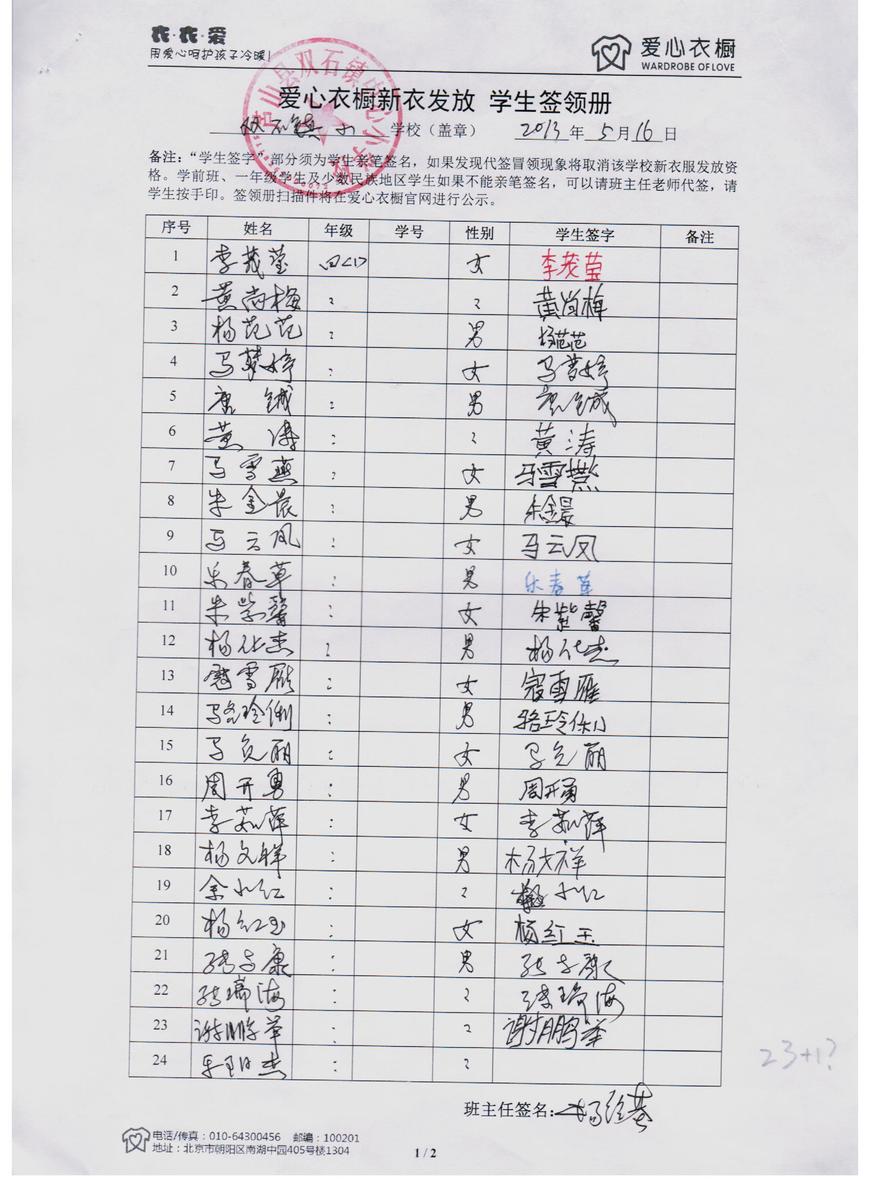 衣·衣·爱
用爱心呵护孩子冷暖!
爱心衣橱
WARDROBE OF LOVE
爱心衣橱新衣发放 学生签领册
双石镇小 学校（盖章） 2013年5月16日
芦山县双石镇中心小学校
备注：“学生签字”部分须为学生亲笔签名，如果发现代签冒领现象将取消该学校新衣服发放资
格。学前班、一年级学生及少数民族地区学生如果不能亲笔签名，可以请班主任老师代签，请
学生按手印。签领册扫描件将在爱心衣橱官网进行公示。
序号 姓名 年级 学号 性别 学生签字 备注
1 李茂莹 四(1) 女 李茂莹
2 黄尚梅 黄尚梅
3 杨范范 男 杨范范
4 马梦婷 女 马梦婷
5 唐铖 男 唐铖
6 黄涛 黄涛
7 马雪燕 女 马雪燕
8 朱金晨 男 朱金晨
9 马云凤 女 马云凤
10 乐春草 男 乐春草
11 朱紫馨 女 朱紫馨
12 杨代杰 男 杨代杰
13 寇雪雁 女 寇雪雁
14 骆玲俐 男 骆玲俐
15 马 丽 女 马 丽
16 周开勇 男 周开勇
17 李茹萍 女 李茹萍
18 杨文祥 男 杨文祥
19 余小红 小红
20 杨红玉 女 杨红玉
21 张子康 男 张子康
22 张瑞海 张瑞海
23 谢鹏举 谢鹏举
24 杰
23+1?
班主任签名：杨
电话/传真：010-64300456 邮编：100201
地址：北京市朝阳区南湖中园405号楼1304
1 / 2